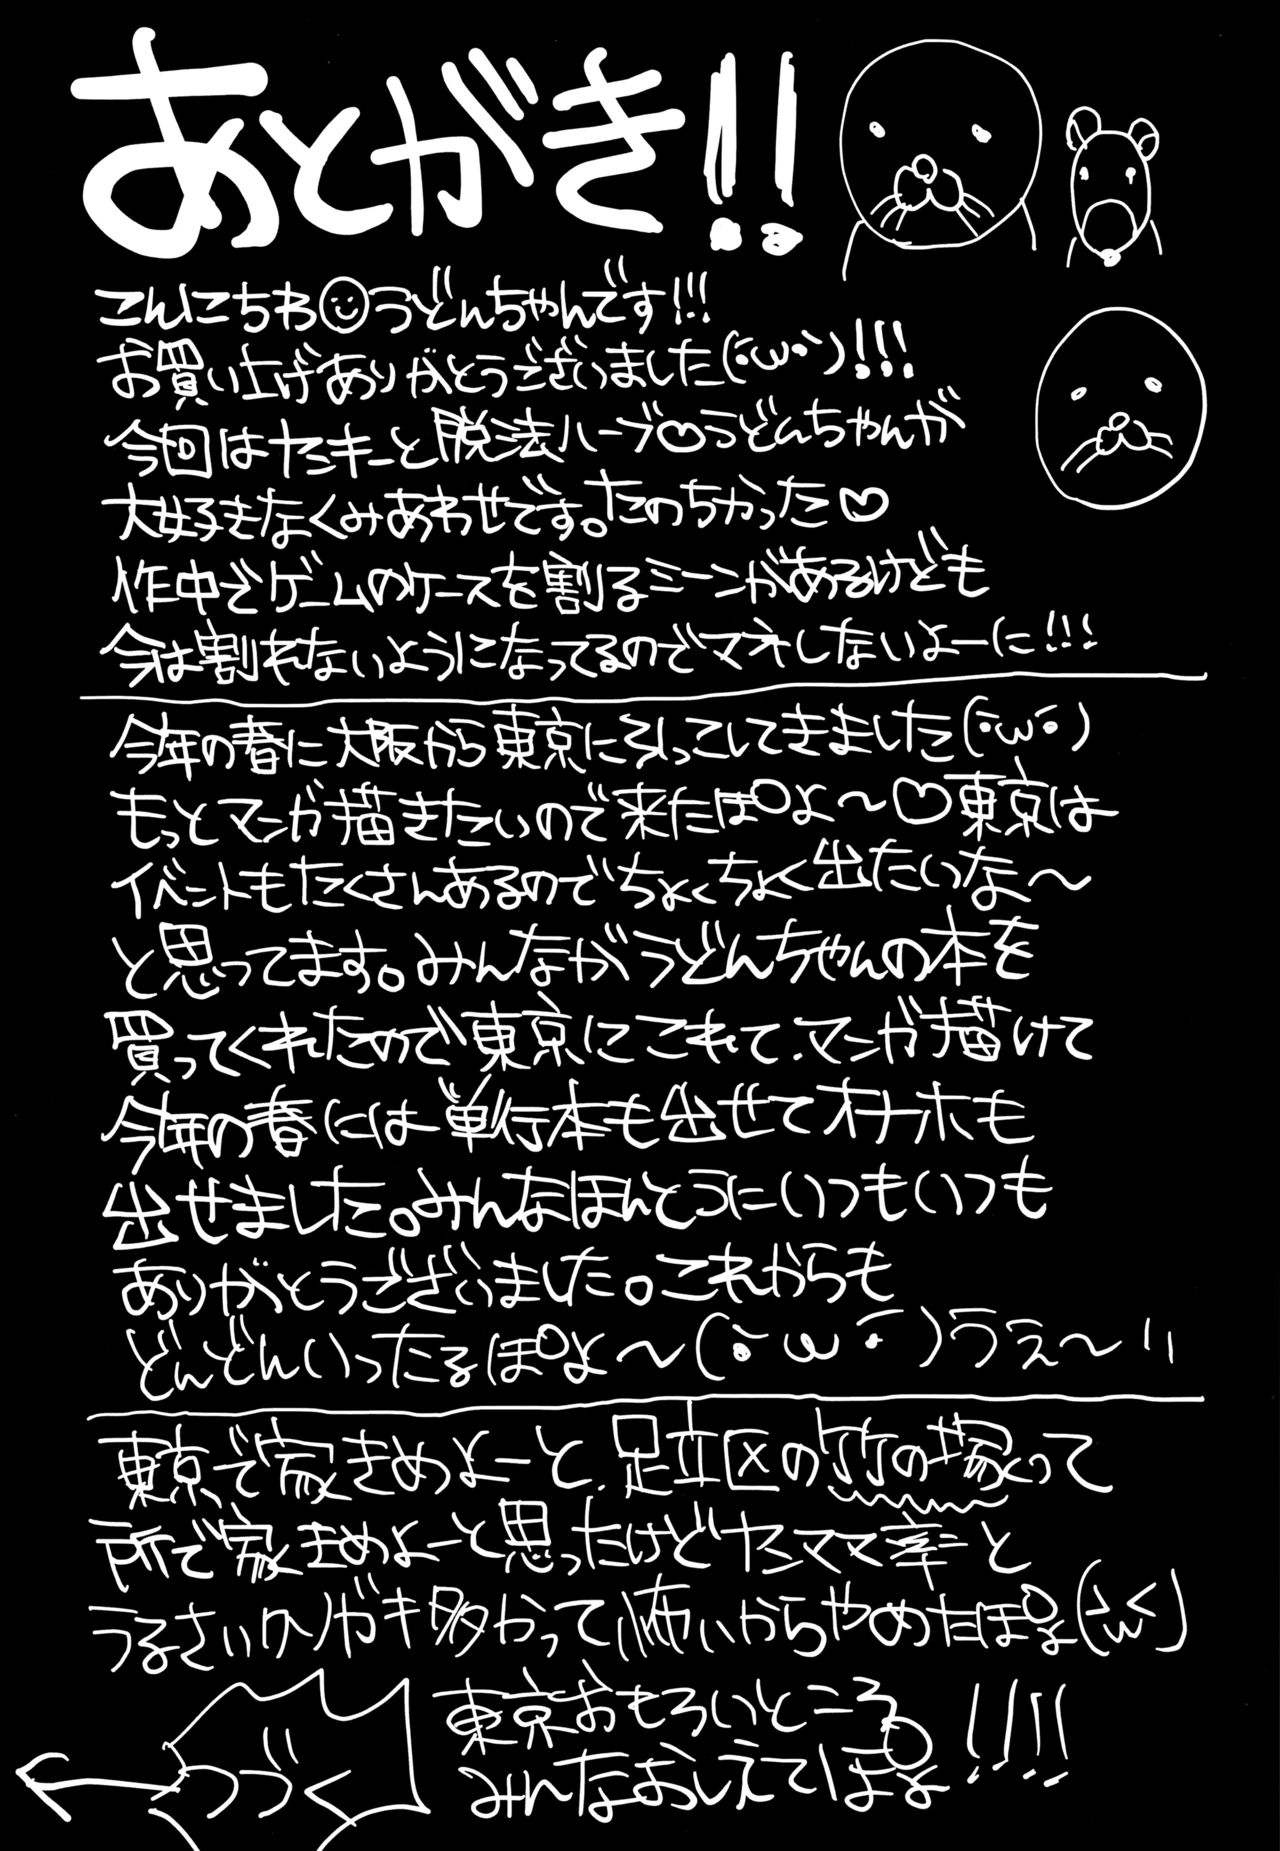 あとがき!!
こんにちわ うどんちゃんです!!!
お買い上げありがとうございました(・ω・)!!!
今回はヤンキーと脱法ハーブ♡うどんちゃんが
大好きなくみあわせです。たのちかった♡
作中でゲームのケースを割るシーンがあるけども
今は割れないようになってるのでマネしないよーに!!!
今年の春に大阪から東京に引っこしてきました(・ω・)
もっとマンガ描きたいので来たぽよ〜♡東京は
イベントもたくさんあるのでちょくちょく出たいな〜
と思ってます。みんながうどんちゃんの本を
買ってくれたので東京にこれて、マンガ描けて
今年の春には単行本も出せてオナホも
出せました。みんなほんとうにいつもいつも
ありがとうございました。これからも
どんどんいったるぽよ〜(・ω・)うぇ〜い
東京で家きめよーと、足立区の竹の塚って
所で家きめよーと思ったけどヤンママ率と
うるさいクソガキ多かって怖いからやめたぽよ(・ω<)
東京おもろいところ
みんなおしえてぽよ!!!!
つづく